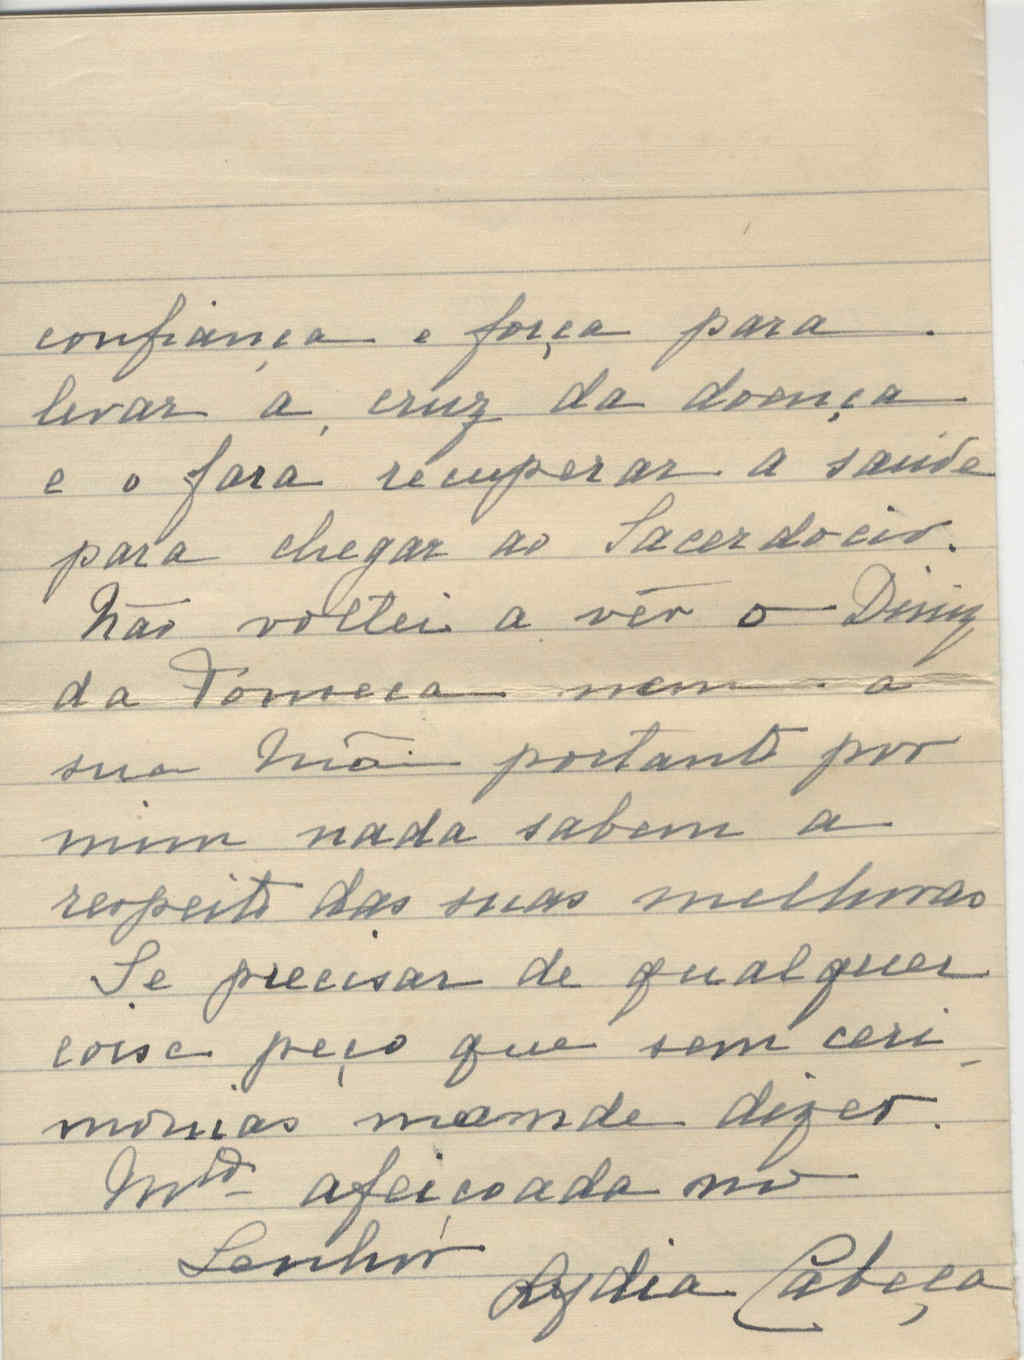 confiança e força para
levar a cruz da doença
e o fará recuperar a saúde
para chegar ao Sacerdocio.
Não voltei a vêr o Diniz
da Fonseca nem a
sua Mãi portanto por
mim nada sabem a
respeito das suas melhoras
Se precisar de qualquer
coisa peço que sem ceri-
monias mande dizer.
Mtº afeiçoada no
Senhôr
Lydia Cabeça